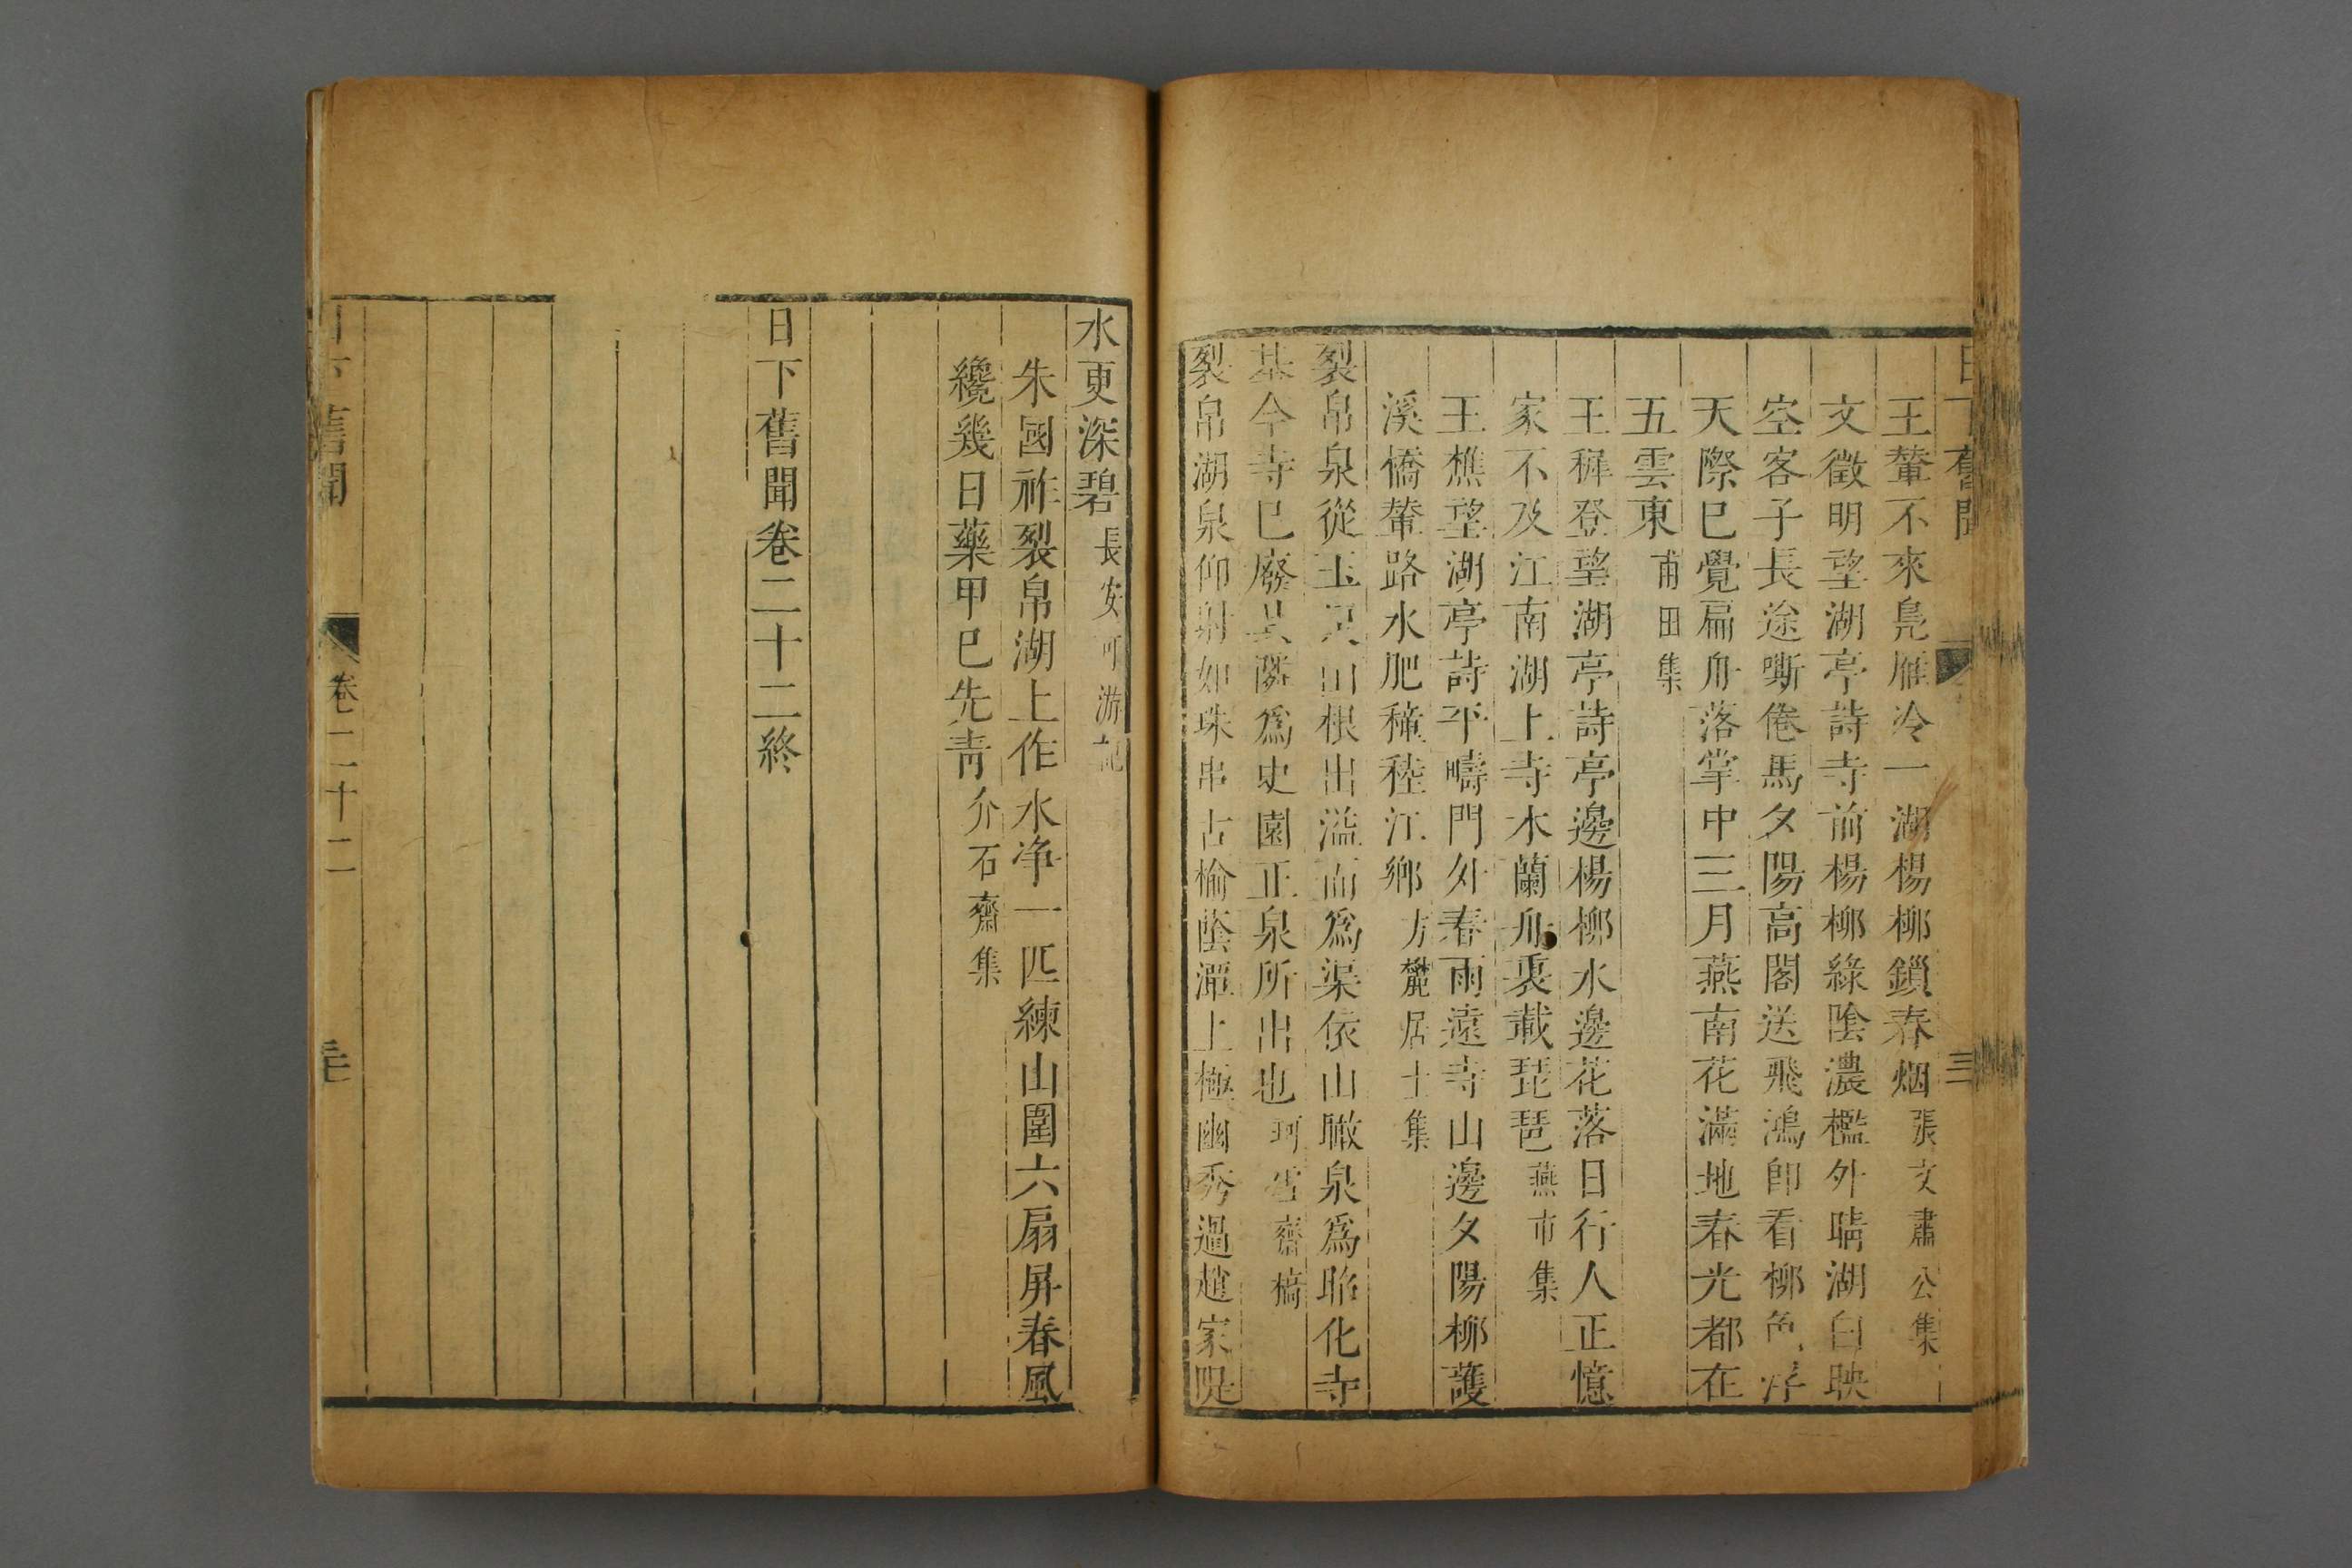 日下舊聞
三
王輦不來鳧雁冷一湖楊柳鎖春烟張文肅公集
文徵明望湖亭詩寺前楊柳綠陰濃檻外晴湖白映
空客子長途嘶倦馬夕陽高閣送飛鴻即看柳色浮
天際巳覺扁舟落掌中三月燕南花滿地春光都在
五雲東甫田集
王穉登望湖亭詩亭邊楊柳水邊花落日行人正憶
家不及江南湖上寺木蘭舟裏載琵琶燕市集
王樵望湖亭詩平疇門外春雨遠寺山邊夕陽柳護
溪橋輦路水肥穜稑江鄉方麓居士集
裂帛泉從玉泉山根出溢而爲渠依山瞰泉爲昭化寺
基今寺巳廢其隣爲史園正泉所出也珂雪齋稿
裂帛湖泉仰射如珠串古榆蔭潭上極幽秀過趙家堤
水更深碧長安可游記
朱國祚裂帛湖上作水净一匹練山圍六扇屏春風
纔幾日藥甲巳先靑介石齋集
日下舊聞卷二十二終
日下舊聞
卷二十二